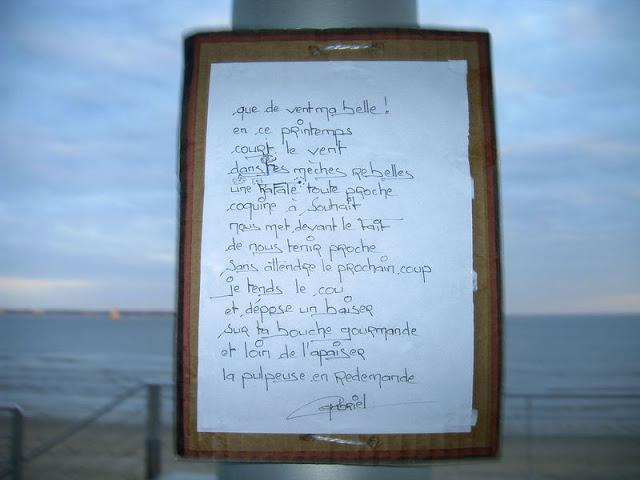 que de vent ma belle !
en ce printemps
court le vent
dans tes mèches rebelles
une rafale toute proche
coquine à souhait
nous met devant le fait
de nous tenir proche
sans attendre le prochain coup
je tends le cou
et dépose un baiser
sur ta bouche gourmande
et loin de l'apaiser
la pulpeuse en redemande
Gabriel